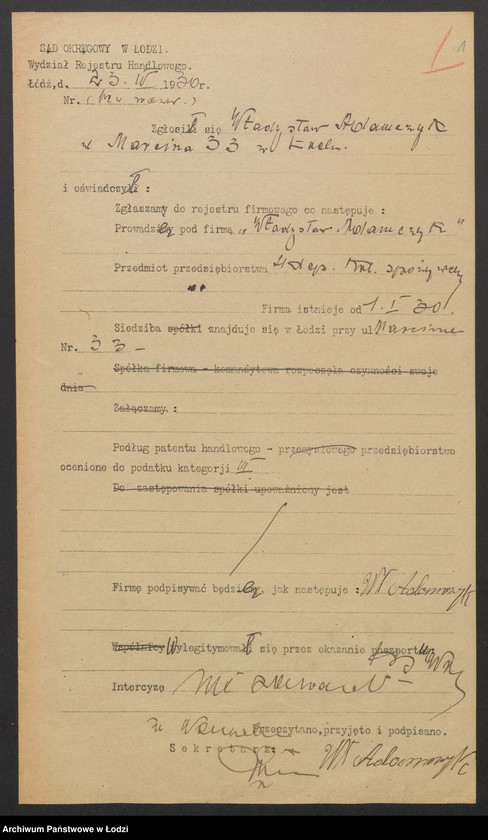 1
SĄD OKRĘGOWY W ŁODZI.
Wydział Rejestru Handlowego.
Łódź, d. 23. IV 1930 r.
Nr.
Zgłosił się Władysław Adamczyk
Marcina 33
i oświadczył :
Zgłaszam do rejestru firmowego co następuje :
Prowadzę pod firmą „Władysław Adamczyk"
Przedmiot przedsiębiorstwa sklep
Firma istnieje od 1. I 30.
Siedziba spółki znajduje się w Łodzi przy ul Marcina
Nr. 33 -
Spółka firmowa - komandytowa rozpoczęła czynności swoje
dnia
Załączamy :
Podług patentu handlowego - przemysłowego przedsiębiorstwo
ocenione do podatku kategorji III
Do zastępowania spółki upoważniony jest
Firmę podpisywać będzie, jak następuje : Wł Adamczyk
Wspólnicy Wylegitymował się przez okazanie paszportu
Intercyzę nie zawarł
Przeczytano, przyjęto i podpisano.
Sekretarz:
Wł Adamczyk
Archiwum Państwowe w Łodzi